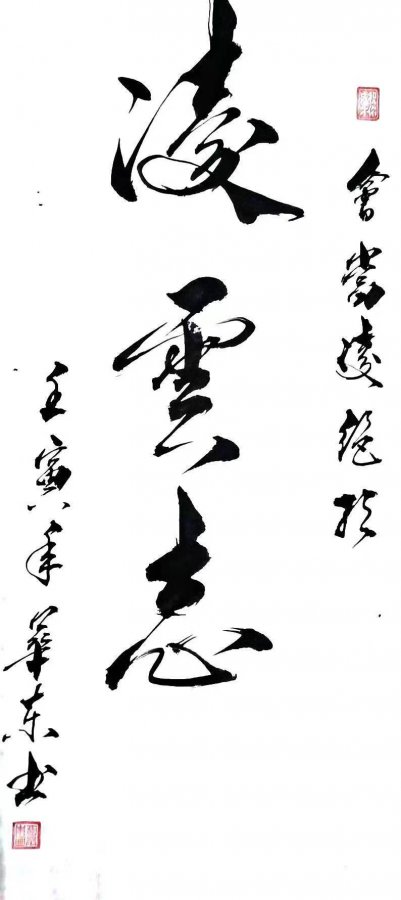 會當凌絕頂
凌雲志
壬寅年華东书